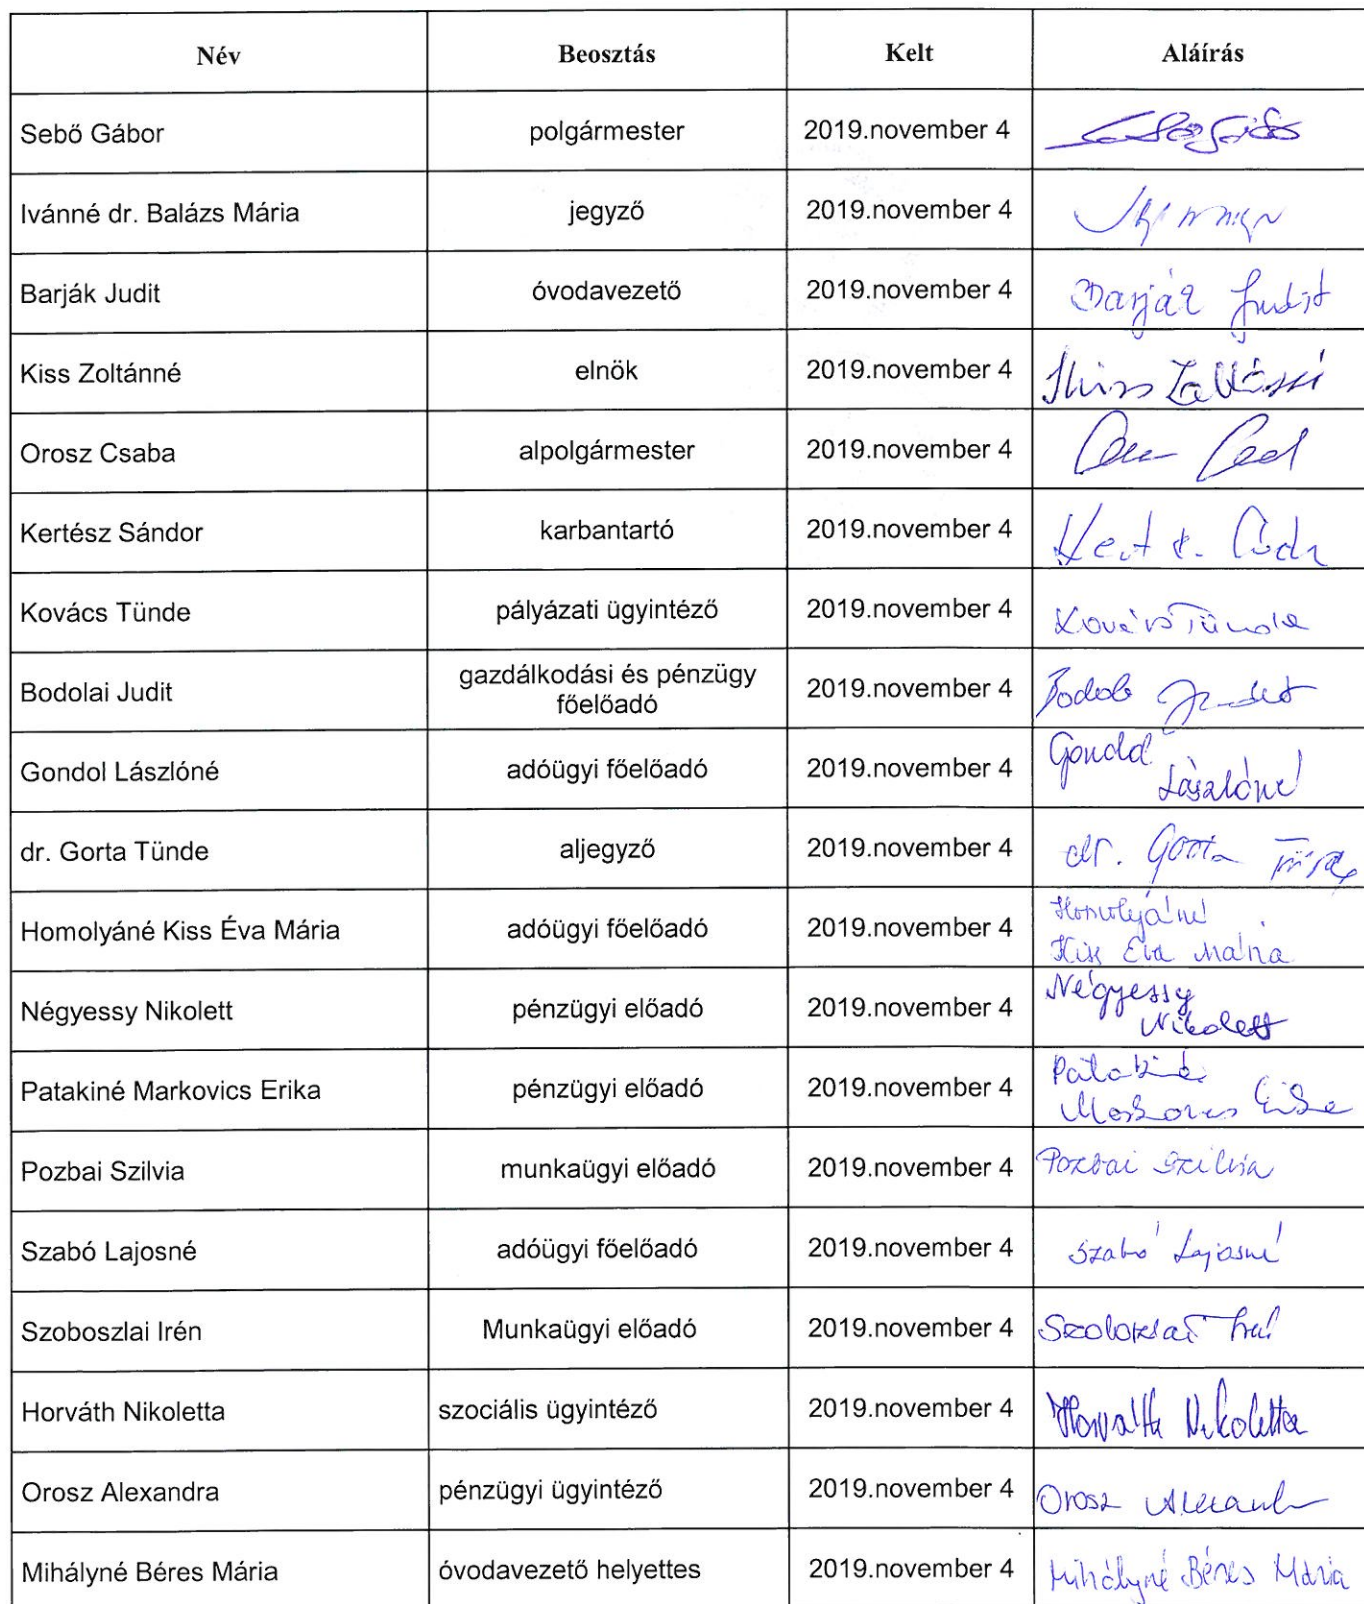 Név Beosztás Kelt Aláírás
Sebő Gábor polgármester 2019.november 4
Ivánné dr. Balázs Mária jegyző 2019.november 4
Barják Judit óvodavezető 2019.november 4 Barják Judit
Kiss Zoltánné elnök 2019.november 4 Kiss Zoltánné
Orosz Csaba alpolgármester 2019.november 4
Kertész Sándor karbantartó 2019.november 4
Kovács Tünde pályázati ügyintéző 2019.november 4 Kovács Tünde
Bodolai Judit gazdálkodási és pénzügy 2019.november 4 Judit
főelőadó
Gondol Lászlóné adóügyi főelőadó 2019.november 4 Gondol
Lászlóné
dr. Gorta Tünde aljegyző 2019.november 4 dr. Gorta Tünde
Homolyáné Kiss Éva Mária adóügyi főelőadó 2019.november 4 Homolyáné
Kiss Éva Mária
Négyessy Nikolett pénzügyi előadó 2019.november 4 Négyessy
Nikolett
Patakiné Markovics Erika pénzügyi előadó 2019.november 4 Patakiné
Markovics Erika
Pozbai Szilvia munkaügyi előadó 2019.november 4 Pozbai Szilvia
Szabó Lajosné adóügyi főelőadó 2019.november 4 Szabó Lajosné
Szoboszlai Irén Munkaügyi előadó 2019.november 4 Szoboszlai Irén
Horváth Nikoletta szociális ügyintéző 2019.november 4 Horváth Nikoletta
Orosz Alexandra pénzügyi ügyintéző 2019.november 4 Orosz Alexandra
Mihályné Béres Mária óvodavezető helyettes 2019.november 4 Mihályné Béres Mária